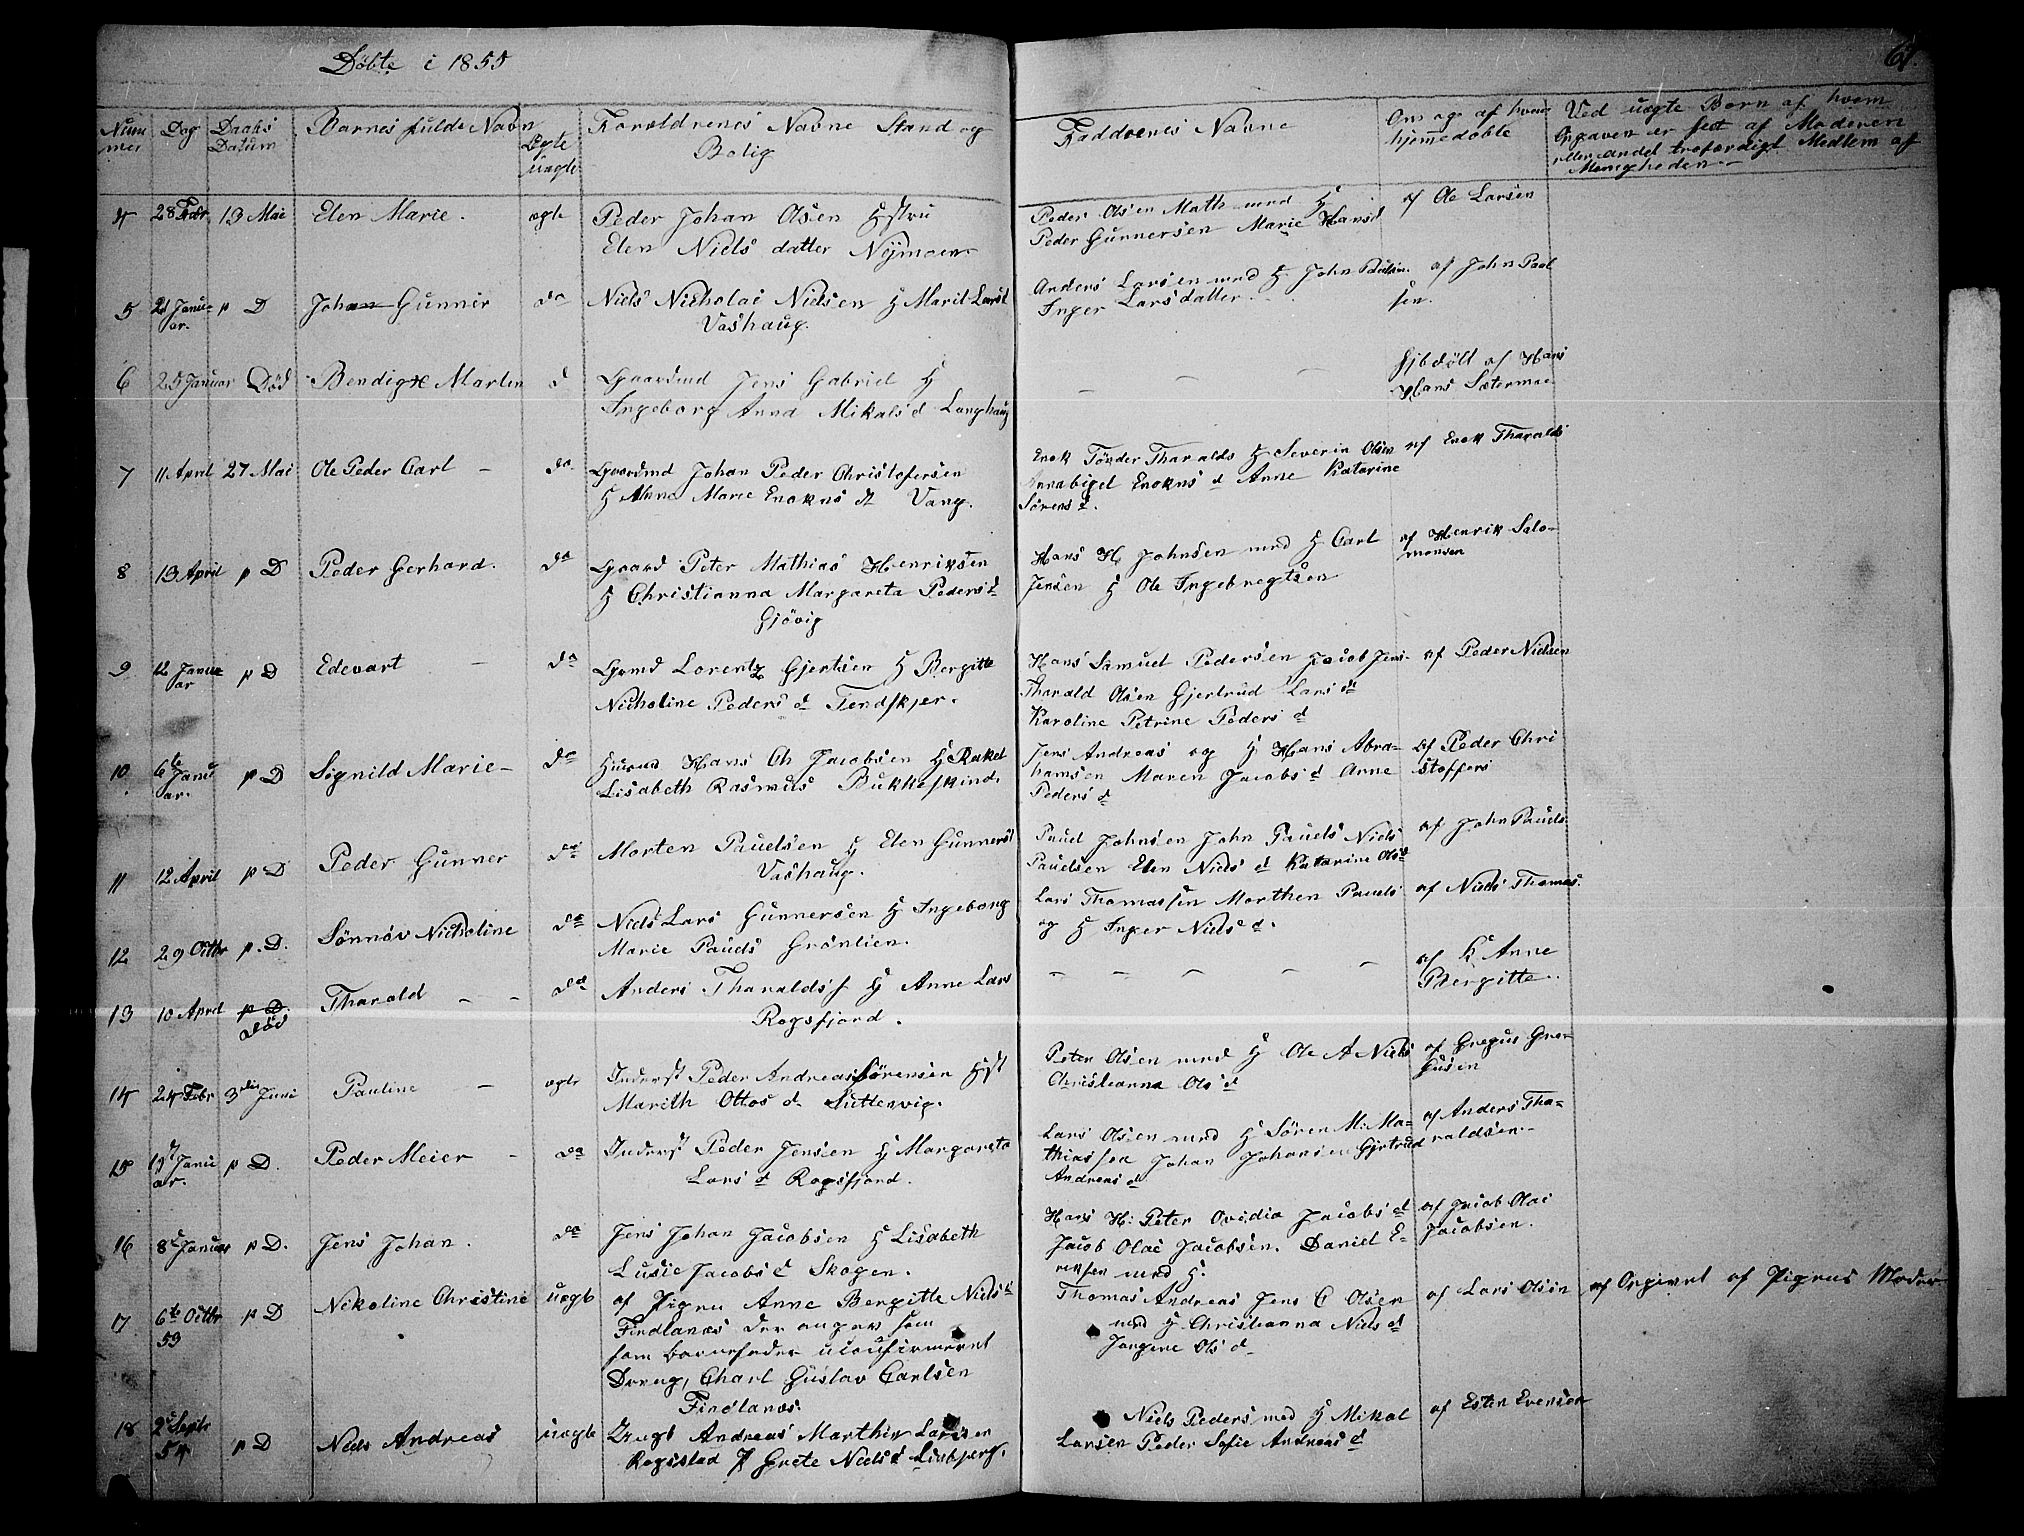 Döbte i 1855
61.
Num
mer
Dag
Daabs
Datum
Barnes fulde Navn
Ægte
uægte
Forældrenes Navne Stand og
Bolig
Faddrenes Navne
Om og af hvem
hjemedøbte
Ved uægte Børn af hvem
Opgaven er skeet af Moderen
eller andet troværdigt Medlem af
Menigheden
4 28 Febr 13 Mai Elen Marie. ægte Peder Johan Olsen Hstru
Elen Niels datter Nÿmoen
Peder Olsen Math med H
Peder Gunnersen Marie Hansd
af Ole Larsen
5 21 Janu-
ar. p D Johan Gunnir do Niels Nicholai Nielsen H Marit Larsd
Vashaug.
Anders Larsen med H. John Paulsen
Inger Larsdatter.
af John Paul
sen.
6 25 Januar Död Bendigte Marten d Gaardmd Jens Gabriel H
Ingeborg Anna Mikalsd Langhaug
af Hans
Hans Sætermoe
7 11 April 27 Mai Ole Peder Carl do Gaardmd Johan Peder Christofersen
H Anne Marie Enokns dt Vang.
Enok Tönder Tharalds H Severin Olsen
Annabigel Enokns d Anne Katarine
Sörens d.
af Enok Tharalds
8 13 April p D Peder Gerhard. do Gaard Peter Mathias Henriksen
H Christianna Margareta Pedersd
Gjövig
Hans H Johnsen med H Carl
Jensen H Ole Ingebregtsen
af Henrik Salo-
monsen
9 12 Janu
ar p D Edevart do Grmd Lorentz Gjertsen H Bergitte
Nicholine Peders d Tendskjer.
Hans Samuel Pedersen Jacob Jens-
Tharald Olsen Gjertrud Lars dt
Karoline Petrine Peders d
af Peder Nielsen
10 6te
Janu
ar. p D Signild Marie do Husmd Hans Ch Jacobsen H Rakel
Lisabeth Rasmus Bukkeskind.
Jens Andreas og H Hans Abra-
hamsen Maren Jacobs d Anne
Peders d
af Peder Chri
stoffers
11 12 April p D Peder Gunner do Morten Pauelsen H Elen Gunnersd
Vashaug.
Pauel Johnsen John Pauels Niels
Pauelsen Elen Niels d Katarine Olsd
af John Pauels
12 29 Octbr p. D. Sönnöv Nicholine do Niels Lars Gunnersen H Ingeborg
Marie Pauels Grönlien.
Lars Thomassen Morthen Pauels
og H Inger Niels d.
af Niels Thomas.
13 10 April p D.
död
Tharald do Anders Tharaldss H Anne Lars
Rogsfjord.
af K Anne
Bergitte.
14 24 Febr 3die Juni Pauline ægte Inderst Peder Andreas Sörensen Hst
Marith Ottos d. Suttervig.
Peter Olsen med H Ole A Niels
Christianna Ols d
af Gregus Gre-
gusen
15 19 Janu
ar. p D. Peder Meier do Inderst Peder Jensen H Margareta
Lars d Rogsfjord.
Lars Olsen med H Sören M: Ma-
thiassen Johan Johansen Gjertrud
Andreas d
af Anders Tha-
raldsen.
16 8 Januar p D. Jens Johan. do Jens Johan Jacobsen H Lisabeth
Lusie Jacobs d Skogen.
Hans H: Peter Ovidia Jacobs d
Jacob Olai Jacobsen. Daniel E-
riksen med H.
af Jacob Olai
Jacobsen.
17 6te Octbr
53 p D Nikoline Christine uægte af Pigen Anne Bergitte Nielsd
Findlanæs der angav som
som barnefader uconfirmeret
Dreng, Charl Gustav Carlsen
Findlanæs.
Thomas Andreas Jens C Olsen
med H Christianna Niels d
Jorgine Ols d
af Lars Olsen
af Opgivet af Pigens Moder
18 2 Septbr
54 p D Niels Andreas uægte Andreas Marthin Larsen
Rogsstad P Grete Niels d Lindbjerg.
Niels Peders med H Mikal
Larsen Peder Sofie Andreas d
af Esten Evensen